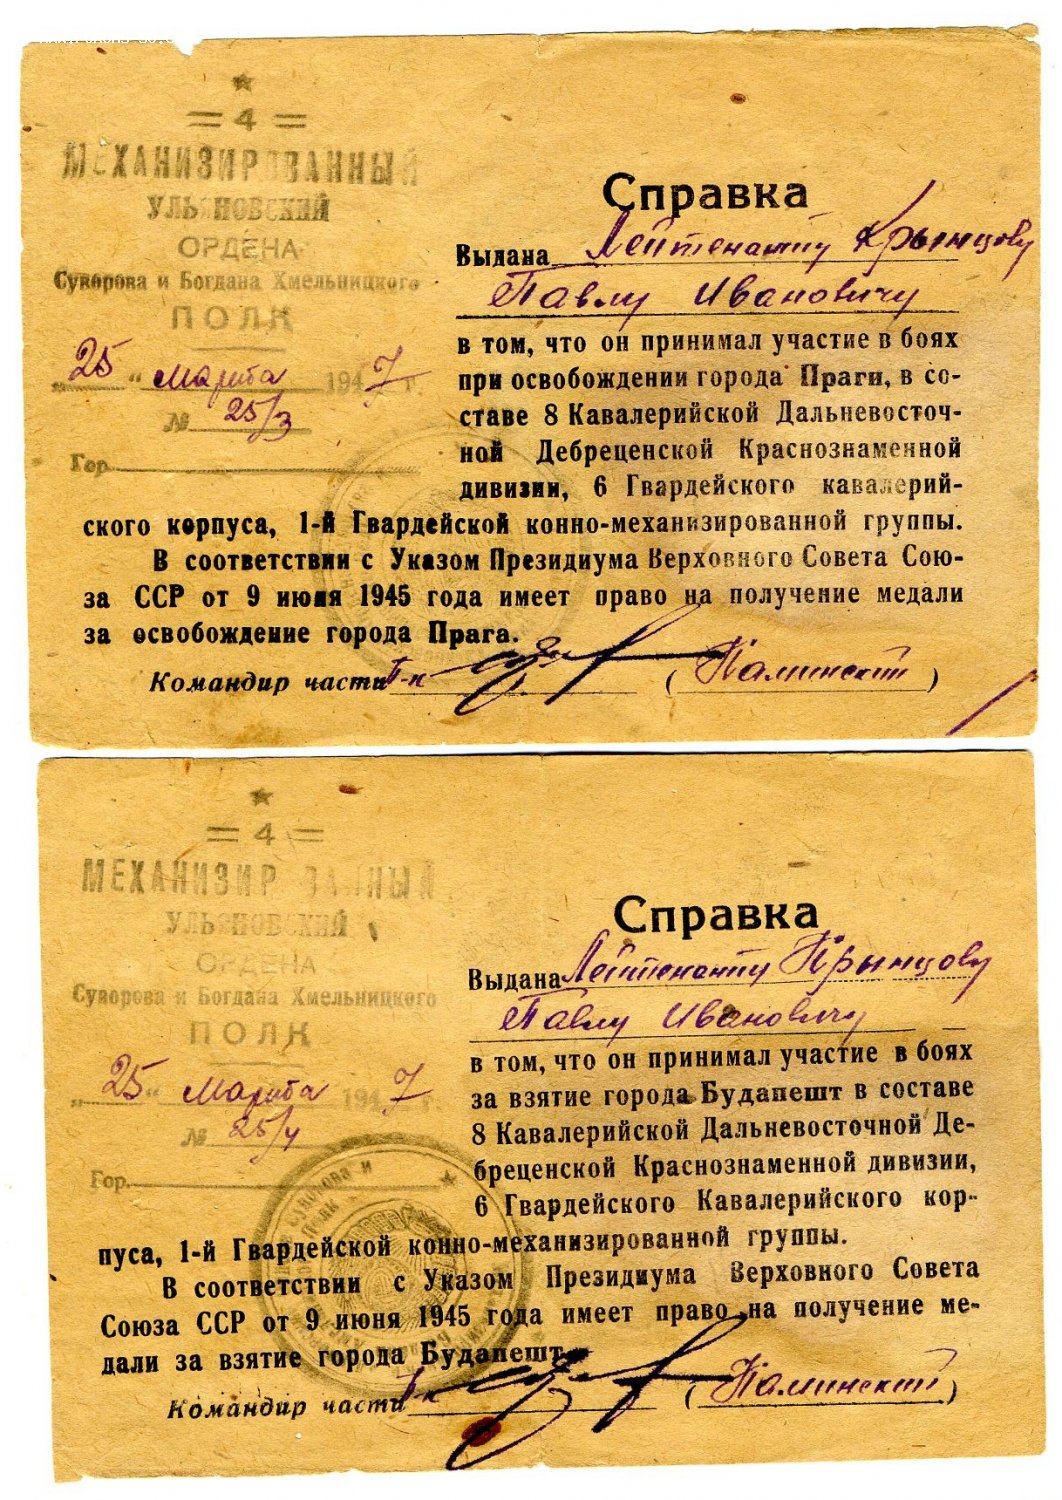 ★
= 4 =
МЕХАНИЗИРОВАННЫЙ
УЛЬЯНОВСКИЙ
ОРДЕНА
Суворова и Богдана Хмельницкого
ПОЛК
„25“ Марта 1947 г.
№ 25/3
Гор.
Справка
Выдана Лейтенанту Крынцову
Павлу Ивановичу
в том, что он принимал участие в боях
при освобождении города Праги, в со-
ставе 8 Кавалерийской Дальневосточ-
ной Дебреценской Краснознаменной
дивизии, 6 Гвардейского кавалерий-
ского корпуса, 1-й Гвардейской конно-механизированной группы.
В соответствии с Указом Президиума Верховного Совета Сою-
за ССР от 9 июня 1945 года имеет право на получение медали
за освобождение города Прага.
Командир части П-к (Каминский)
★
= 4 =
МЕХАНИЗИР ВАННЫЙ
УЛЬЯНОВСКИЙ
ОРДЕНА
Суворова и Богдана Хмельницкого
ПОЛК
„25“ Марта 1947 г.
№ 25/4
Гор.
Справка
Выдана Лейтенанту Крынцову
Павлу Ивановичу
в том, что он принимал участие в боях
за взятие города Будапешт в составе
8 Кавалерийской Дальневосточной Де-
бреценской Краснознаменной дивизии,
6 Гвардейского Кавалерийского кор-
пуса, 1-й Гвардейской конно-механизированной группы.
В соответствии с Указом Президиума Верховного Совета
Союза ССР от 9 июня 1945 года имеет право на получение ме-
дали за взятие города Будапешт.
Командир части П-к (Каминский)
Суворова и